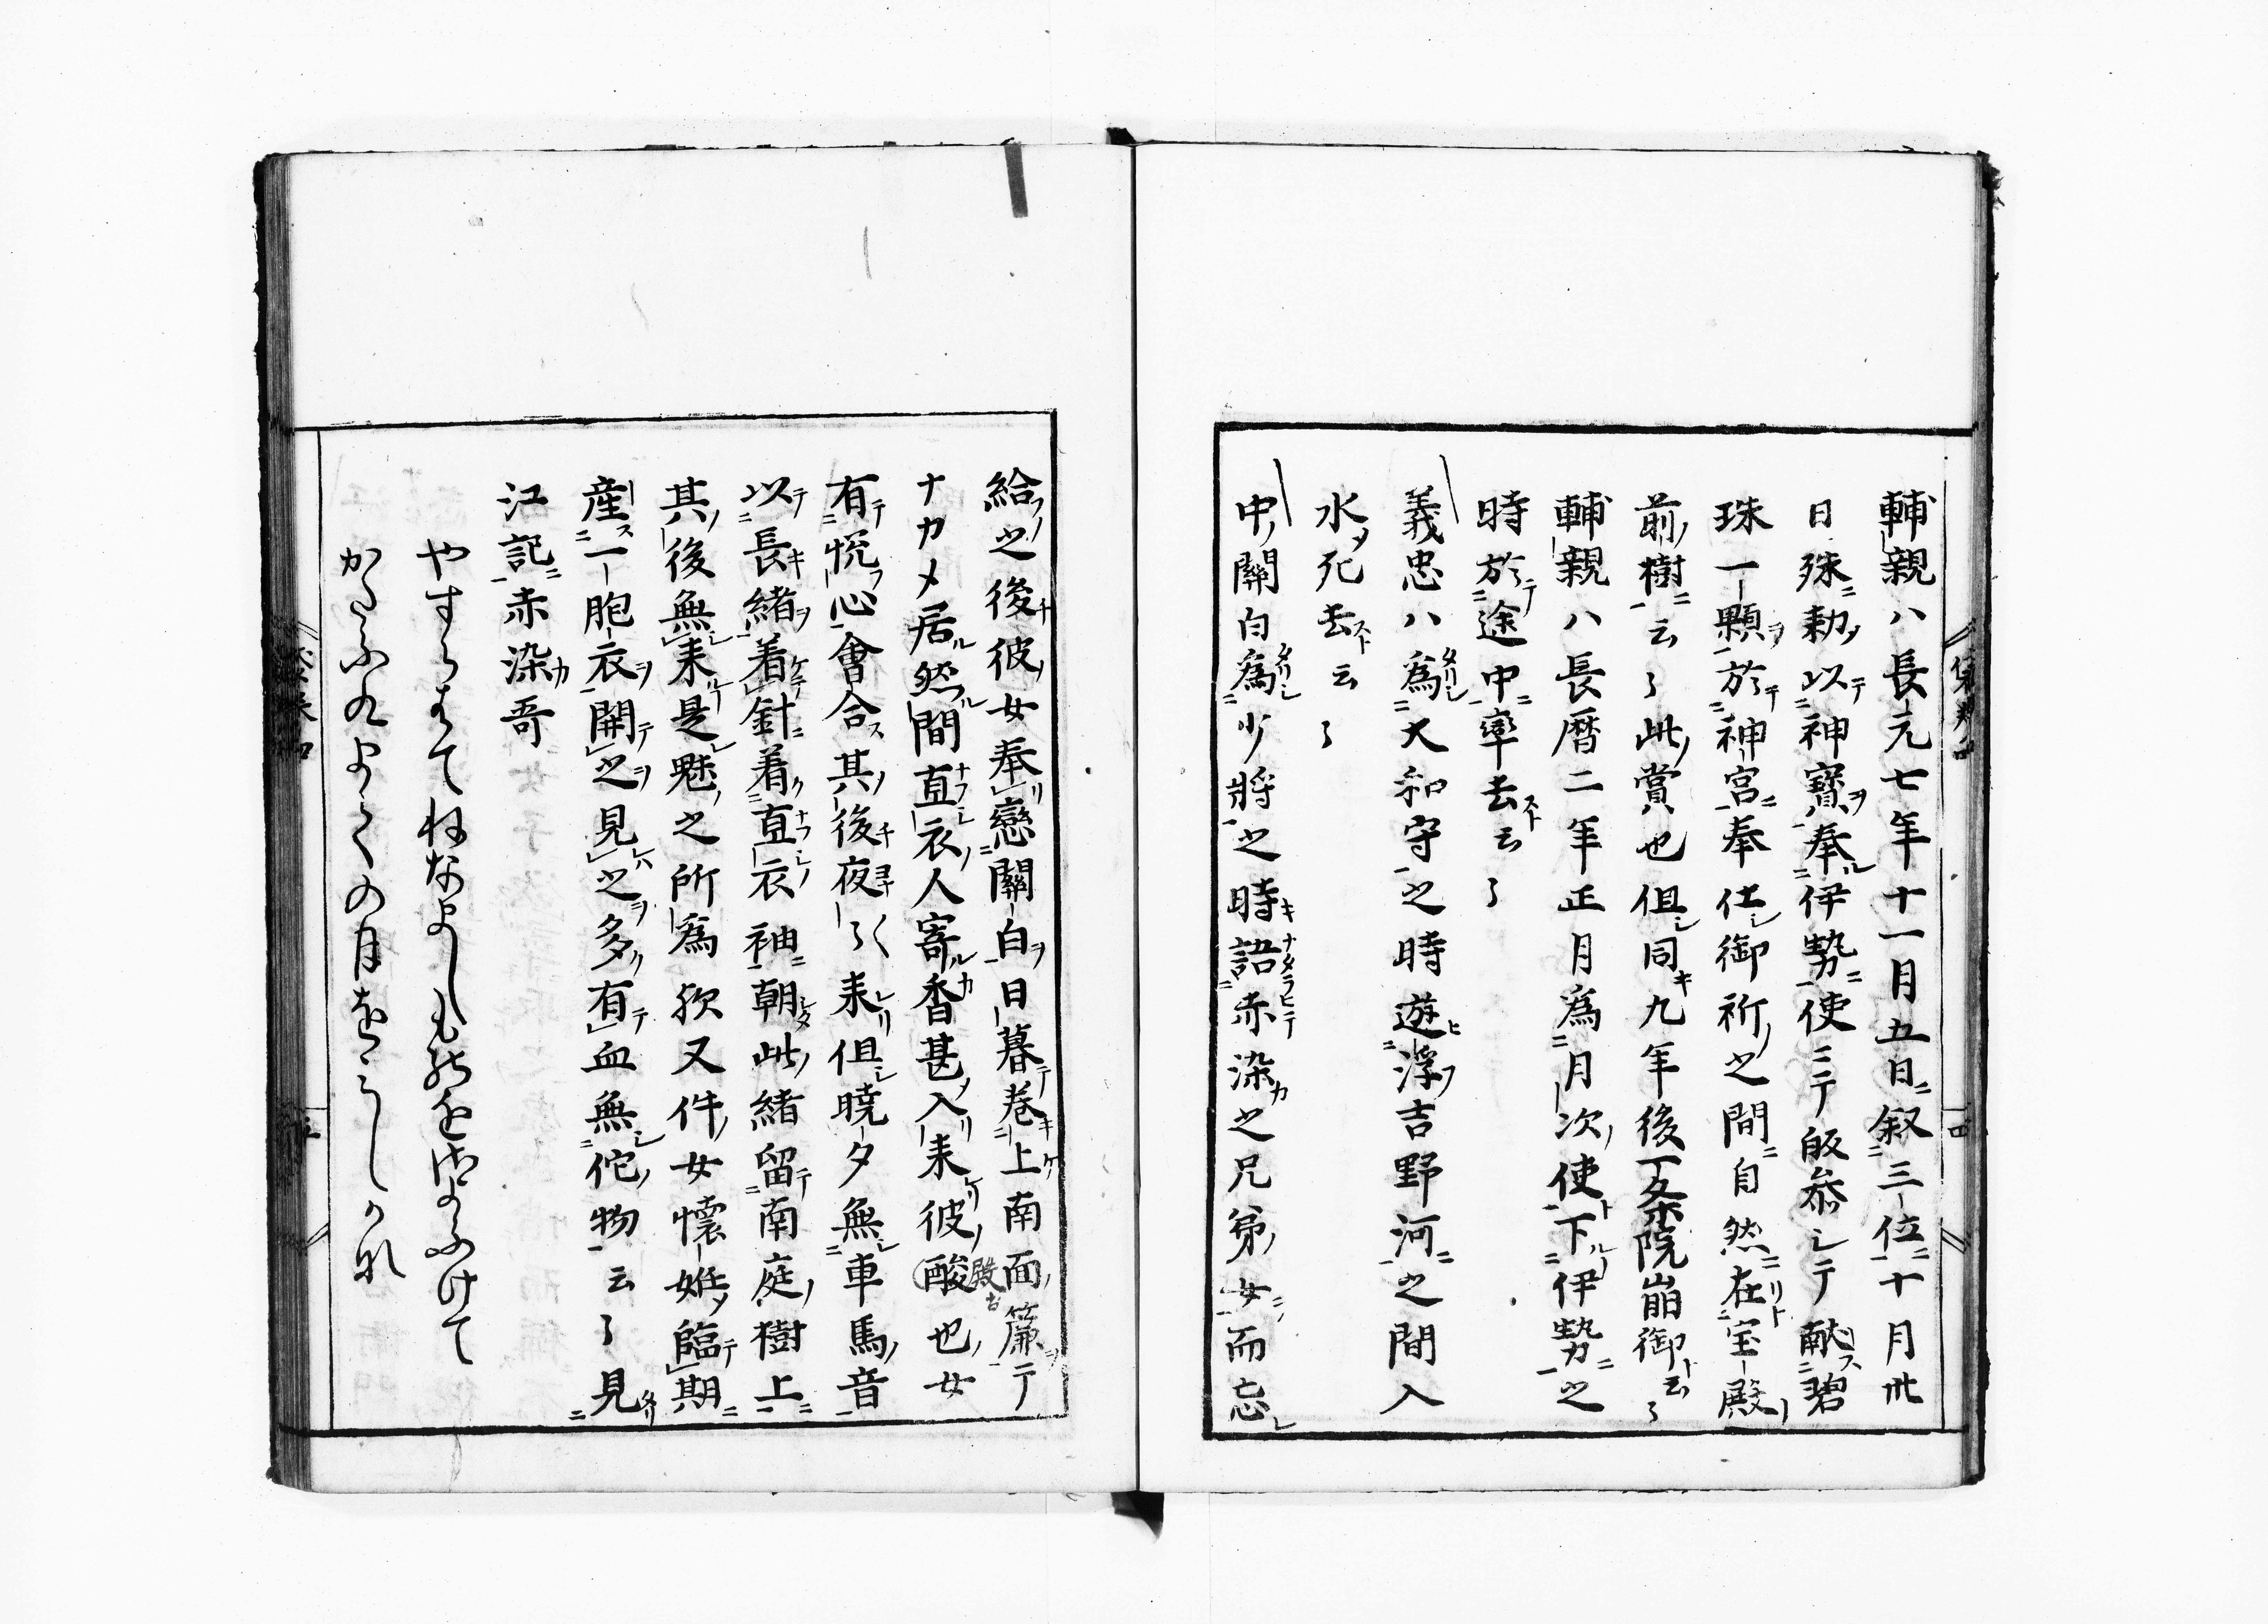 輔親ハ長元七年十一月五日叙三位十月卅
日殊勅以神寶奉伊勢使ニテ皈參シテ献碧
珠一顆於神宮奉仕御祈之間自然在宝殿
前樹云々此賞也但同九年後一条院崩御云々
輔親ハ長暦二年正月為月次使下伊勢之
時於途中卒去云々
義忠ハ為大和守之時遊浮吉野河之間入
水死去云々
中關白為少將之時語赤染之兄弟女而忘
給之後彼女奉戀關白日暮巻上南面簾テ
ナカメ居然間直衣人寄香甚入来彼酸也女
殿
有悦心會合其後夜々来但暁夕無車馬音
以長緒着針着直衣袖朝此緒留南庭樹上
其後無来是魅之所為歟又件女懐姙臨期
産一胞衣開之見之多有血無佗物云々見
江記赤染哥
やすらはてねなましものをさよふけて
かたふくまての月をみしかな